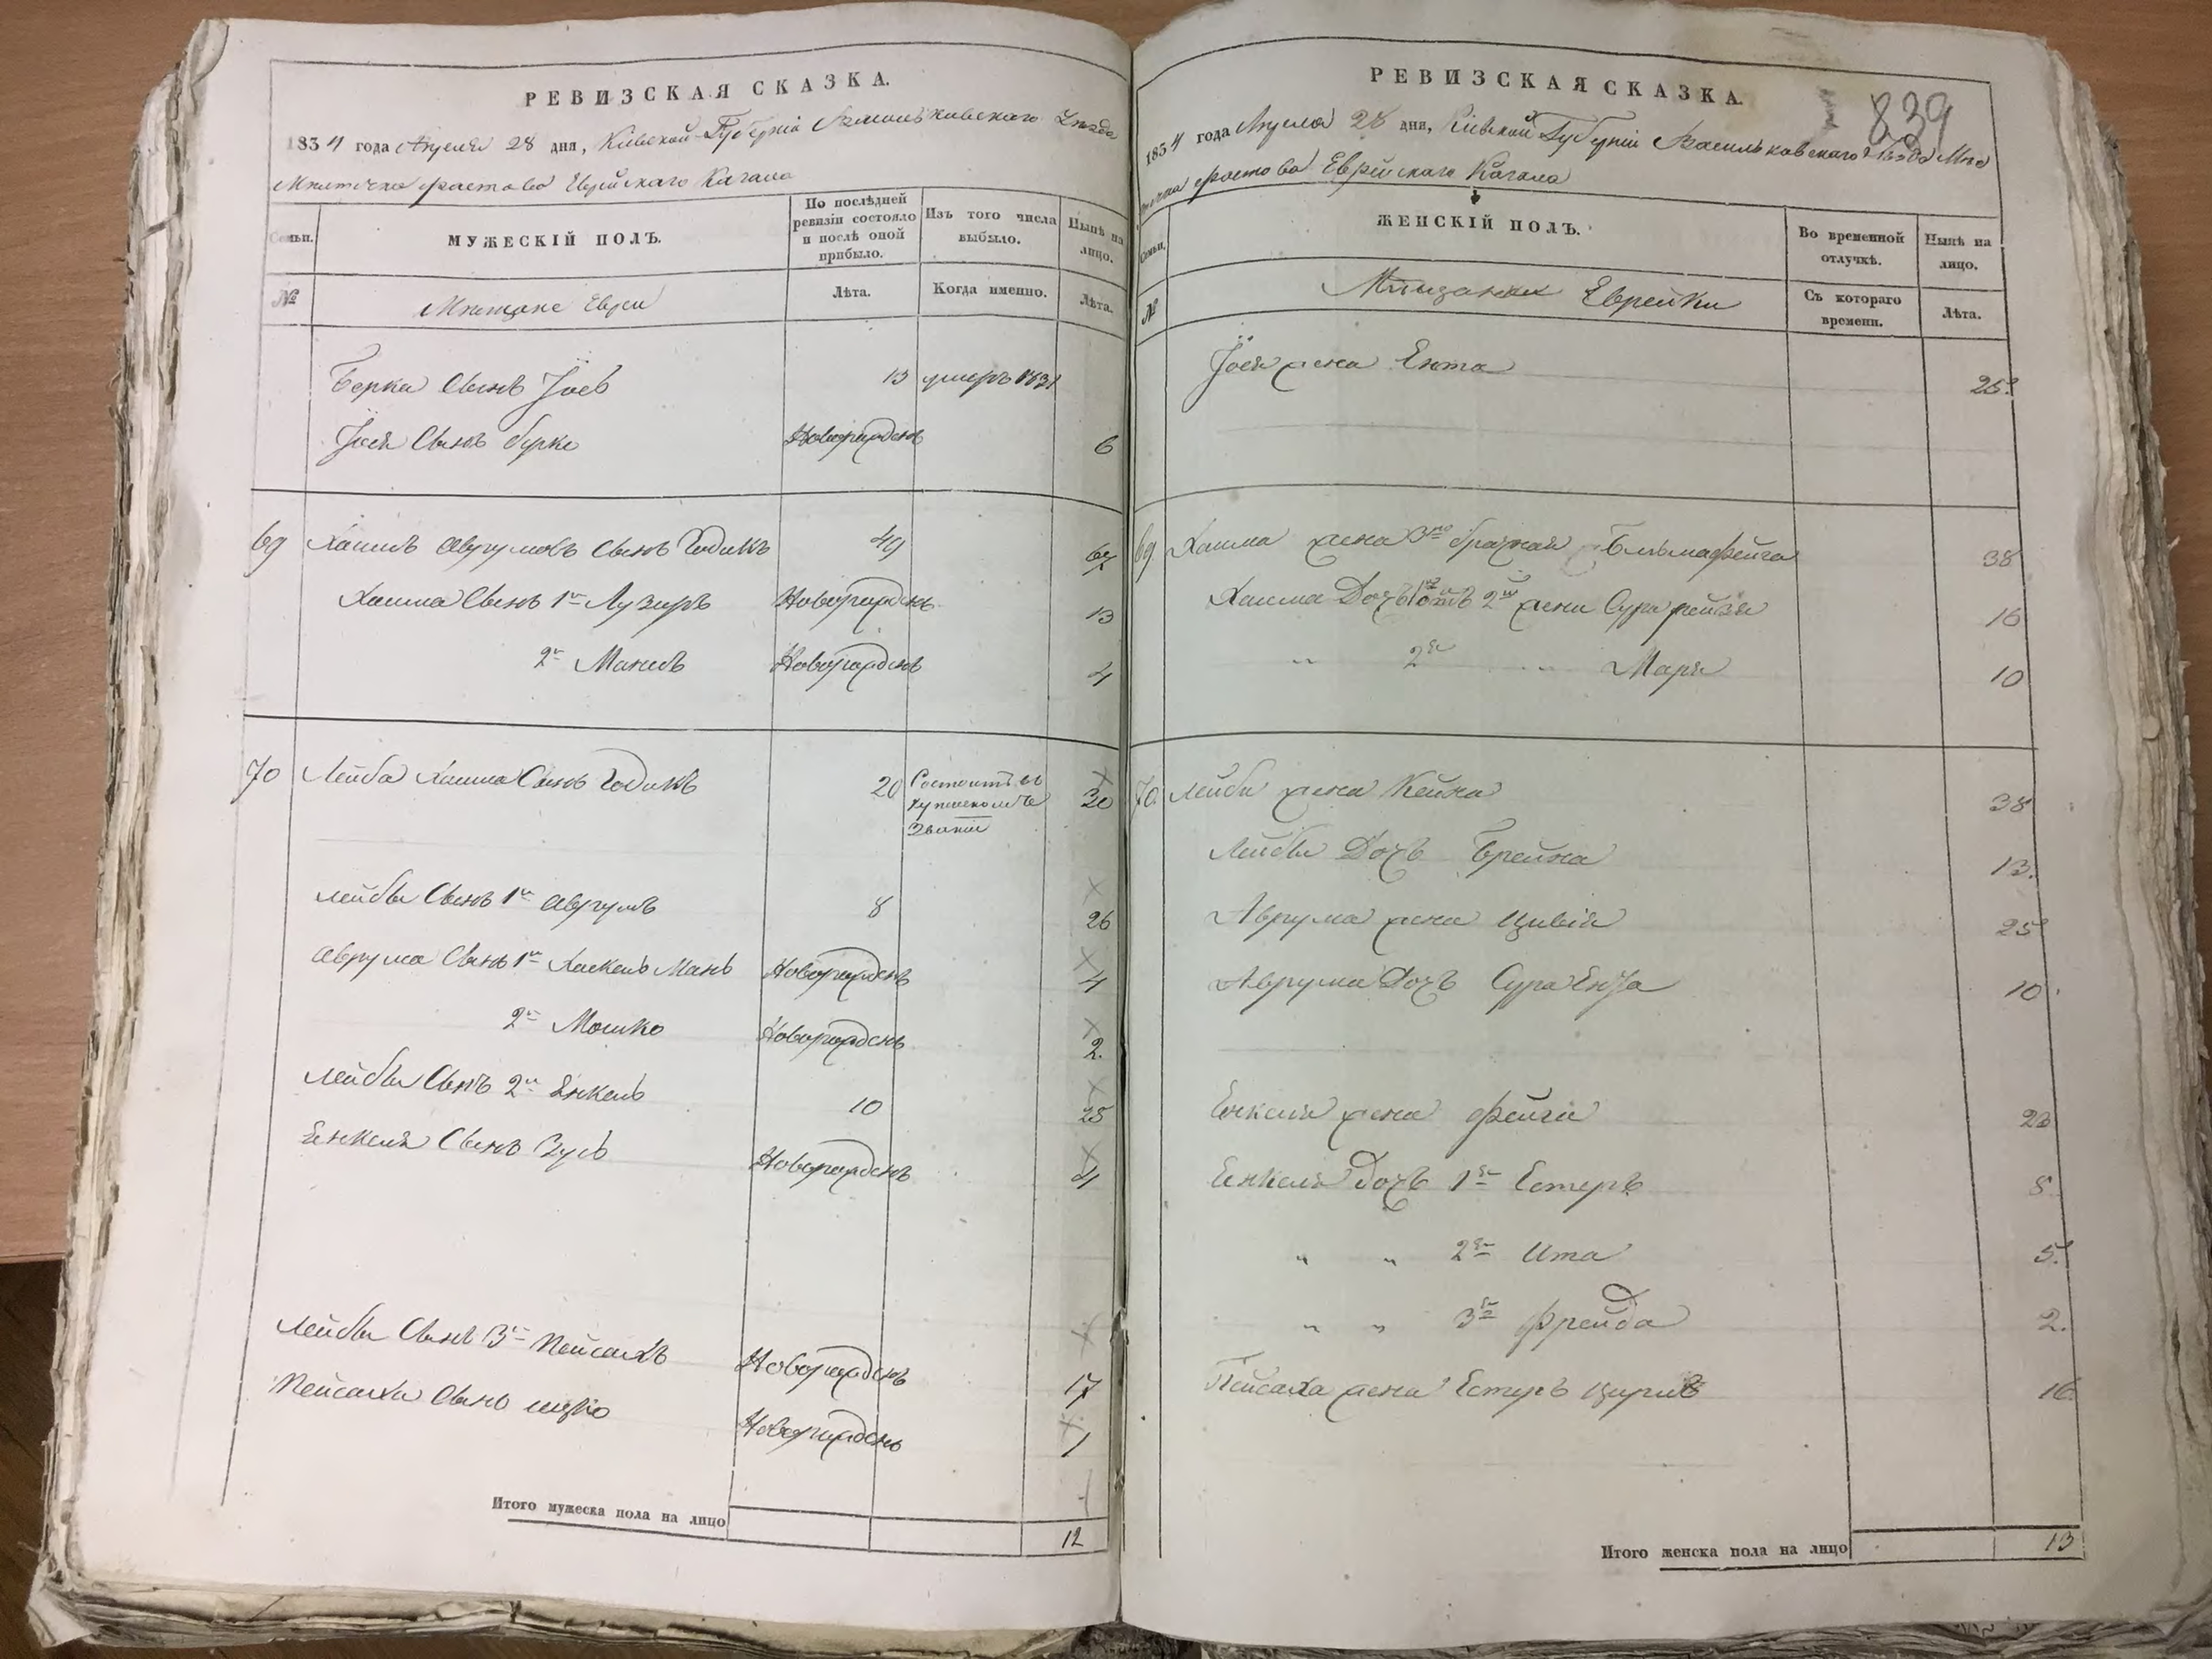 РЕВИЗСКАЯ СКАЗКА.
1834 года Апреля 28 дня, Кіевской Губерніи Васильковскаго Уезда
Местечка Фастова Еврейскаго Кагала
Семьи.
МУЖЕСКІЙ ПОЛЪ.
По послѣдней ревизіи состояло и послѣ оной прибыло.
Изъ того числа выбыло.
Нынѣ на лицо.
№
Мещане Евреи
Лѣта.
Когда именно.
Лѣта.
Берка Сынъ Іось 13 умеръ 1831
Іося Сынъ Берко Новорожденъ 6
69 Хаимъ Аврумовъ Сынъ Годикъ 49
Хаима Сынъ 1й Лузеръ Новорожденъ 13
2й Манель Новорожденъ 4
70 Лейба Хаима Сынъ Годикъ 20 Состоитъ въ купеческомъ званіи
Лейбы Сынъ 1й Аврумъ 8 26
Аврума Сынъ 1й Хаскель Мань Новорожденъ 4
2й Мошко Новорожденъ 2.
Лейбы Сынъ 2й Енкель 10 25
Енкеля Сынъ Зусь Новорожденъ 4
Лейбы Сынъ 3й Пейсахъ Новорожденъ 17
Пейсаха Сынъ Ицко Новорожденъ 1
Итого мужеска пола на лицо 12
839
РЕВИЗСКАЯ СКАЗКА.
1834 года Апреля 28 дня, Кіевской Губерніи Васильковскаго Уезда Мес
течка Фастова Еврейскаго Кагала
Семьи.
ЖЕНСКІЙ ПОЛЪ.
Во временной отлучкѣ.
Нынѣ на лицо.
№
Мещанки Еврейки
Съ котораго времени.
Лѣта.
Іося жена Ента 25.
69 Хаима жена 3го брачная Бльмафейга 38
Хаима Дочь 1я отъ 2й жени Сура рейзя 16
" 2я " Маря 10
70 Лейби жена Кейна 38
Лейбы Дочь Брейна 13.
Аврума жена Цивія 25
Аврума Дочь Сура Ента 10
Енкеля жена Фейга 23
Енкеля Дочь 1я Естеръ 8
" " 2я Ита 5.
" " 3я Фрейда 2.
Пейсаха жена Естеръ Цирля 16.
Итого женска пола на лицо 13